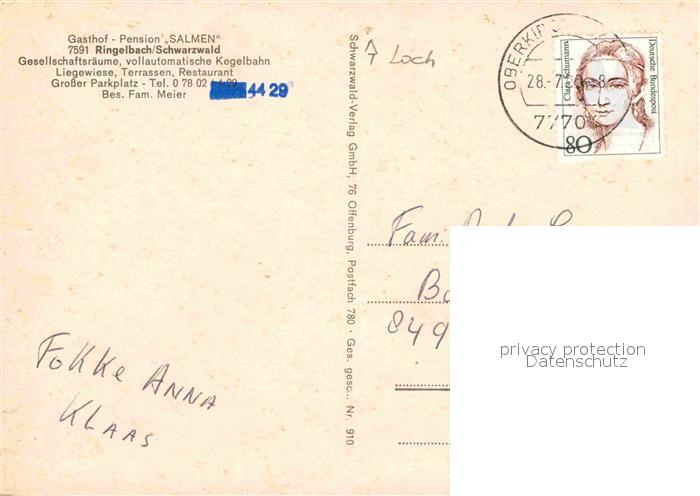 Gasthof - Pension „SALMEN“
7591 Ringelbach/Schwarzwald
Gesellschaftsräume, vollautomatische Kegelbahn
Liegewiese, Terrassen, Restaurant
Großer Parkplatz - Tel. 0 78 02
Bes. Fam. Meier 44 29
Schwarzwald-Verlag GmbH, 76 Offenburg, Postfach 780 · Ges. gesch. Nr. 910
7 Loch
28.-7.
7770
Clara Schumann
Deutsche Bundespost
80
Fam.
849
Fokke Anna
Klaas
privacy protection
Datenschutz